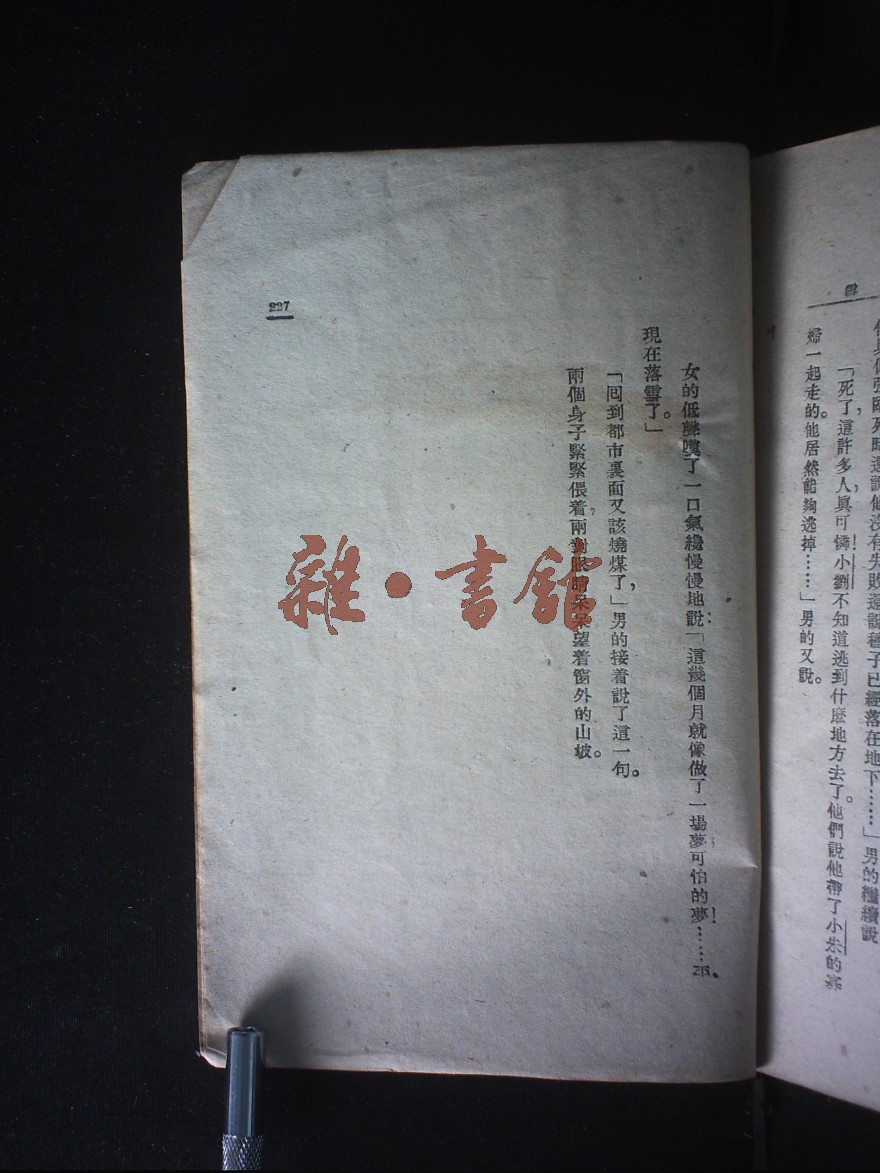 雪
他沒有失敗還說種子已經落在地下……」男的繼續說
「死了，這許多人，眞可憐！小劉不知道逃到什麽地方去了。他們說他帶了小朱的寡
婦一起走的。他居然能夠逃掉……」男的又說。
女的低聲嘆了一口氣，纔慢慢地說：「這幾個月就像做了一場夢，可怕的夢！……
現在落雪了。」
「回到都市裏面又該燒煤了，」男的接着說了這一句。
兩個身子緊緊偎着，兩對眼睛呆呆望着窗外的山坡。
227
雜·書館